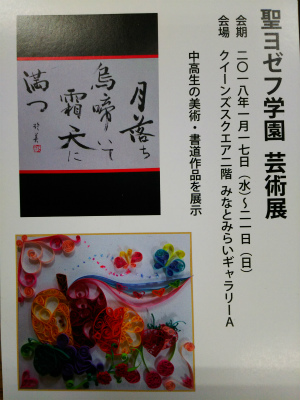 聖ヨゼフ学園 芸術展
会期 二〇一八年一月一七日（水）～二一日（日）
会場 クイーンズスクエア二階 みなとみらいギャラリーA
中高生の美術・書道作品を展示
月落ち
烏啼いて
霜天に
満つ